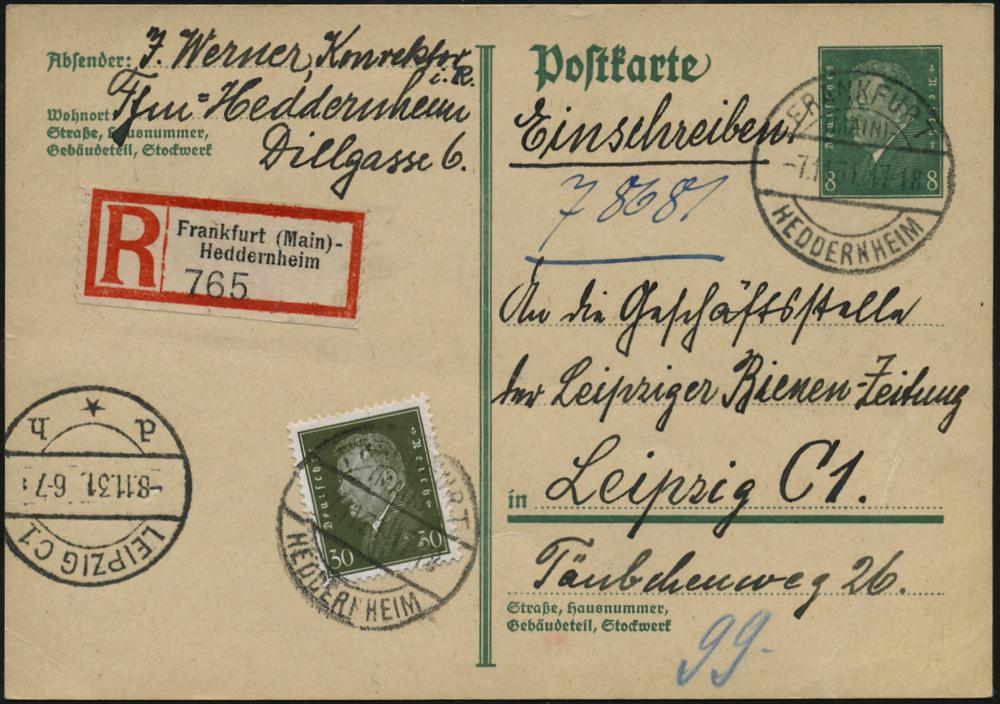 Absender: J. Werner, Konrektor
i. R.
Wohnort Ffm=Heddernheim
Straße, Hausnummer,
Gebäudeteil, Stockwerk
Dillgasse 6.
R
Frankfurt (Main)-
Heddernheim
765
LEIPZIG C1
-8.11.31. 6-7
d h
Deutsches Reich
30 30
HEDDERNHEIM
Postkarte
Einschreiben.
Deutsches Reich
8 8
FRANKFURT
(MAIN)
-7.11.31. 17-18
HEDDERNHEIM
An die Geschäftsstelle
der Leipziger Bienen-Zeitung
in Leipzig C1.
Täubchenweg 26.
Straße, Hausnummer,
Gebäudeteil, Stockwerk
99.-